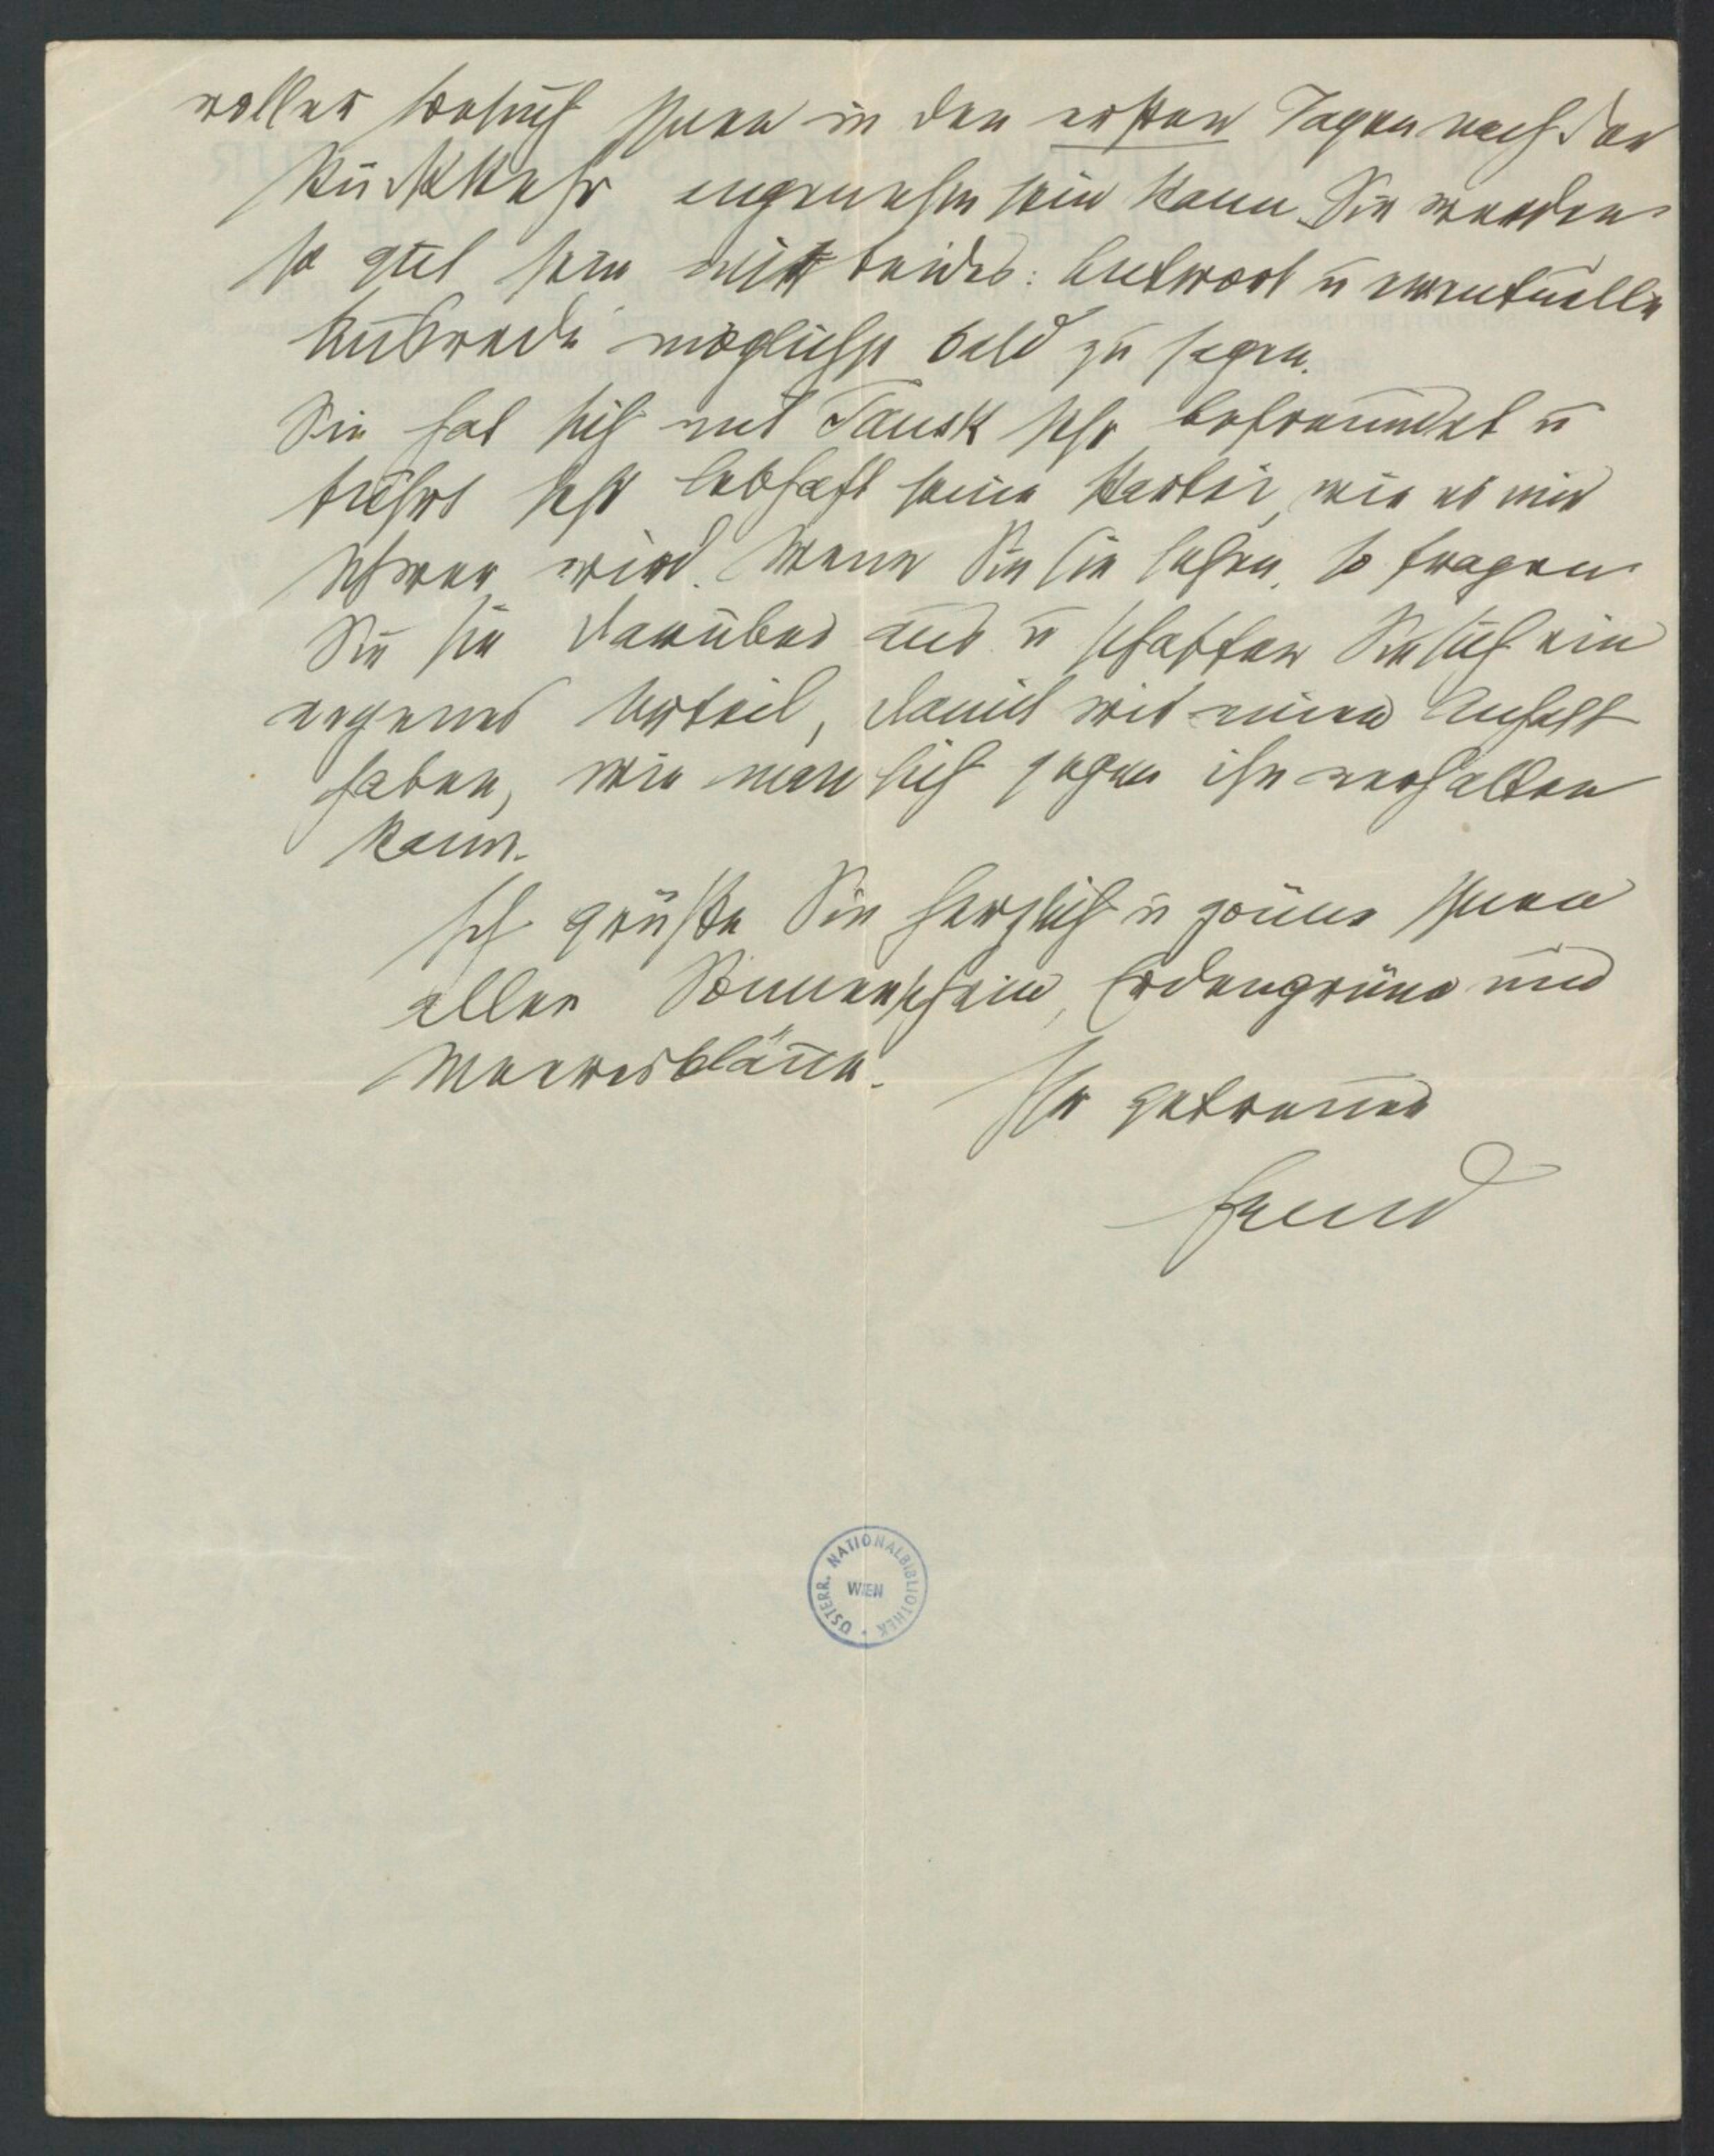 voller Besuch Ihnen in den ersten Tagen nach der
Rückkehr angenehm sein kann. Sie werden
so gut sein mir beides: Antwort u eventuelle
Ausrede möglichst bald zu sagen.
Sie hat sich mit Tausk sehr befreundet u
führt sehr lebhaft seine Partei, wie es mir
schwer wird. Wenn Sie sie sehen, so fragen
Sie sie darüber aus u schaffen Sie sich ein
eigenes Urteil, damit wir einen Anhalt
haben, wie man sich gegen ihn verhalten
kann.
Ich grüße Sie herzlich u gönne Ihnen
allen Sonnenschein, Erdengrüne und
Meeresbläue.
Ihr getreuer
Freud
ÖSTERR. NATIONALBIBLIOTHEK
WIEN